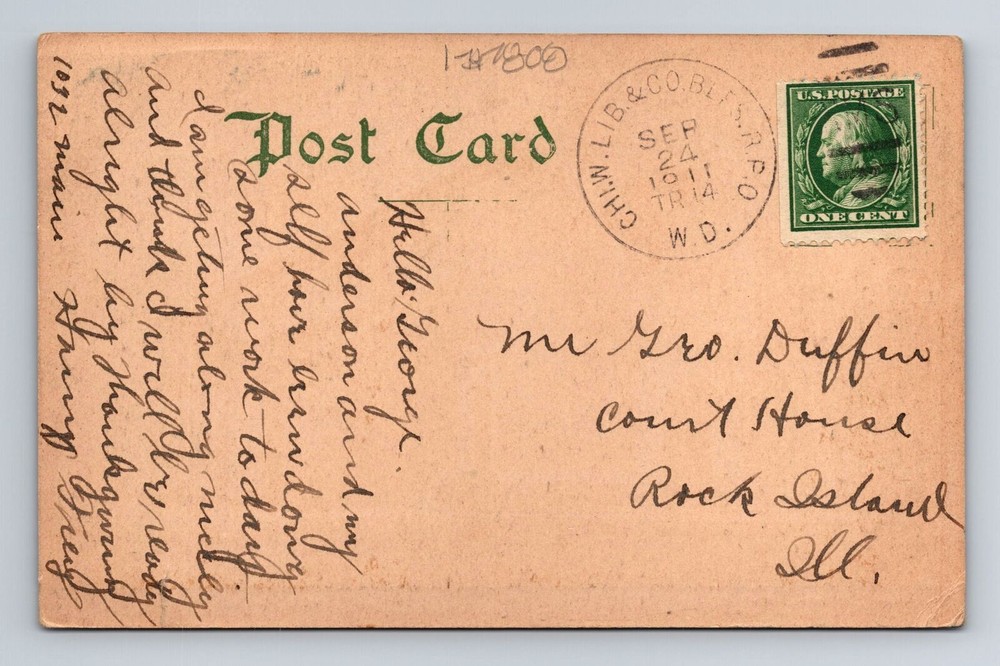 Post Card
CHI.W.LIB.&CO.BLFS.R.P.O.
SEP
24
1911
TR 14
W.D.
U.S. POSTAGE
ONE CENT
Hello George.
anderson and my
self hour are doing
some work to day.
I am geting along nicely
and think I will be ready
alright by thanksgiving
1032 main
Mr Geo. Duffin
Court House
Rock Island
Ill.